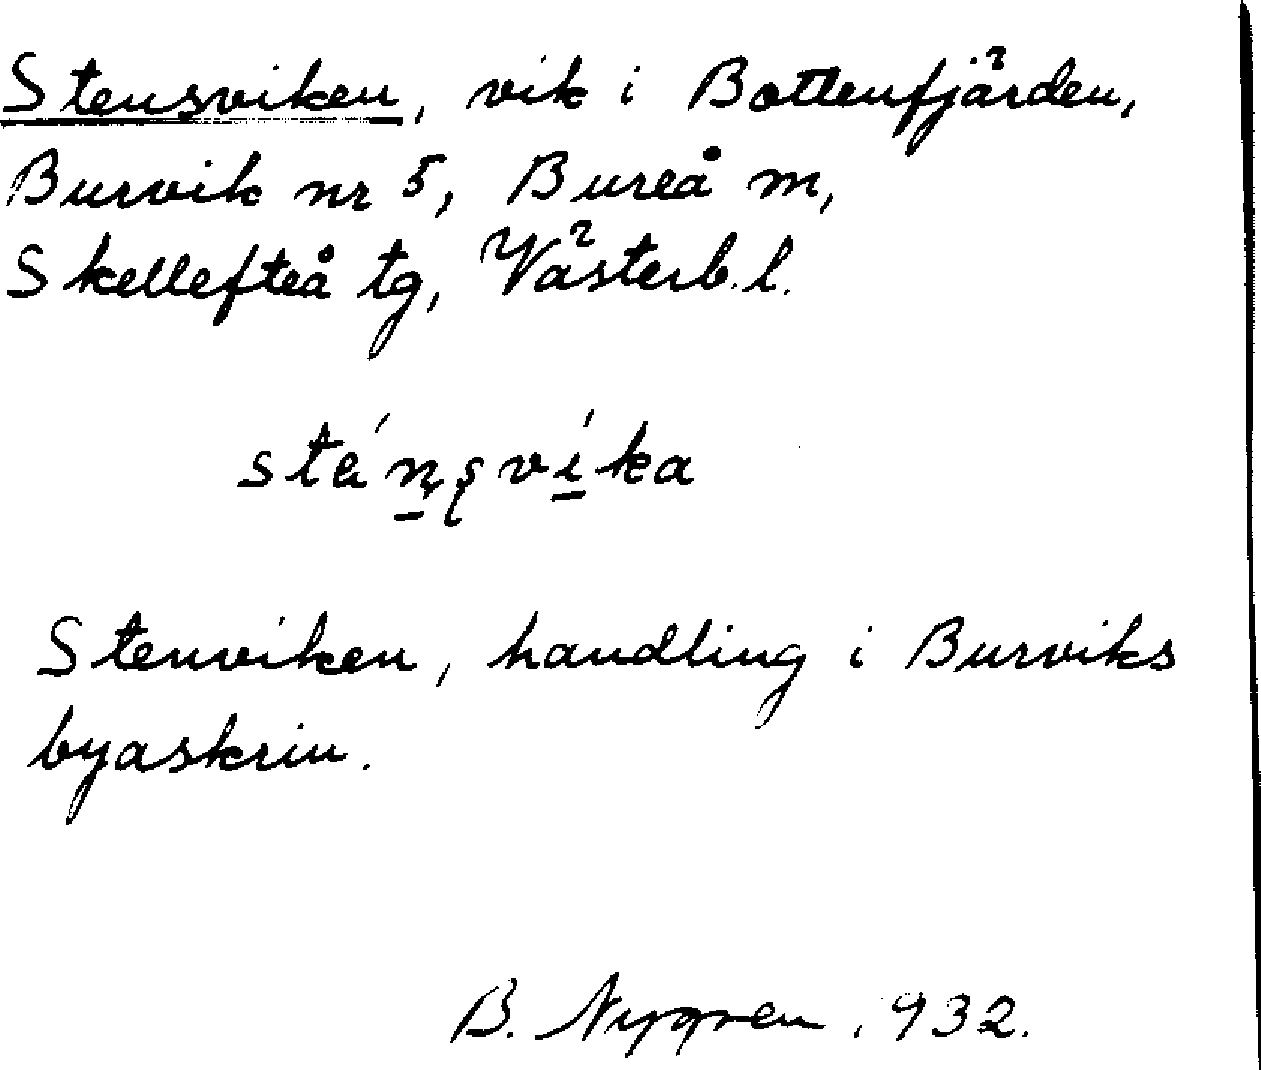 Stensviken, vik i Bottenfjärden,
Burvik nr 5, Bureå m,
Skellefteå tg, Västerb. l.
sténsvíka
Stenviken, handling i Burviks
byaskrin.
B. Nygren 1932.